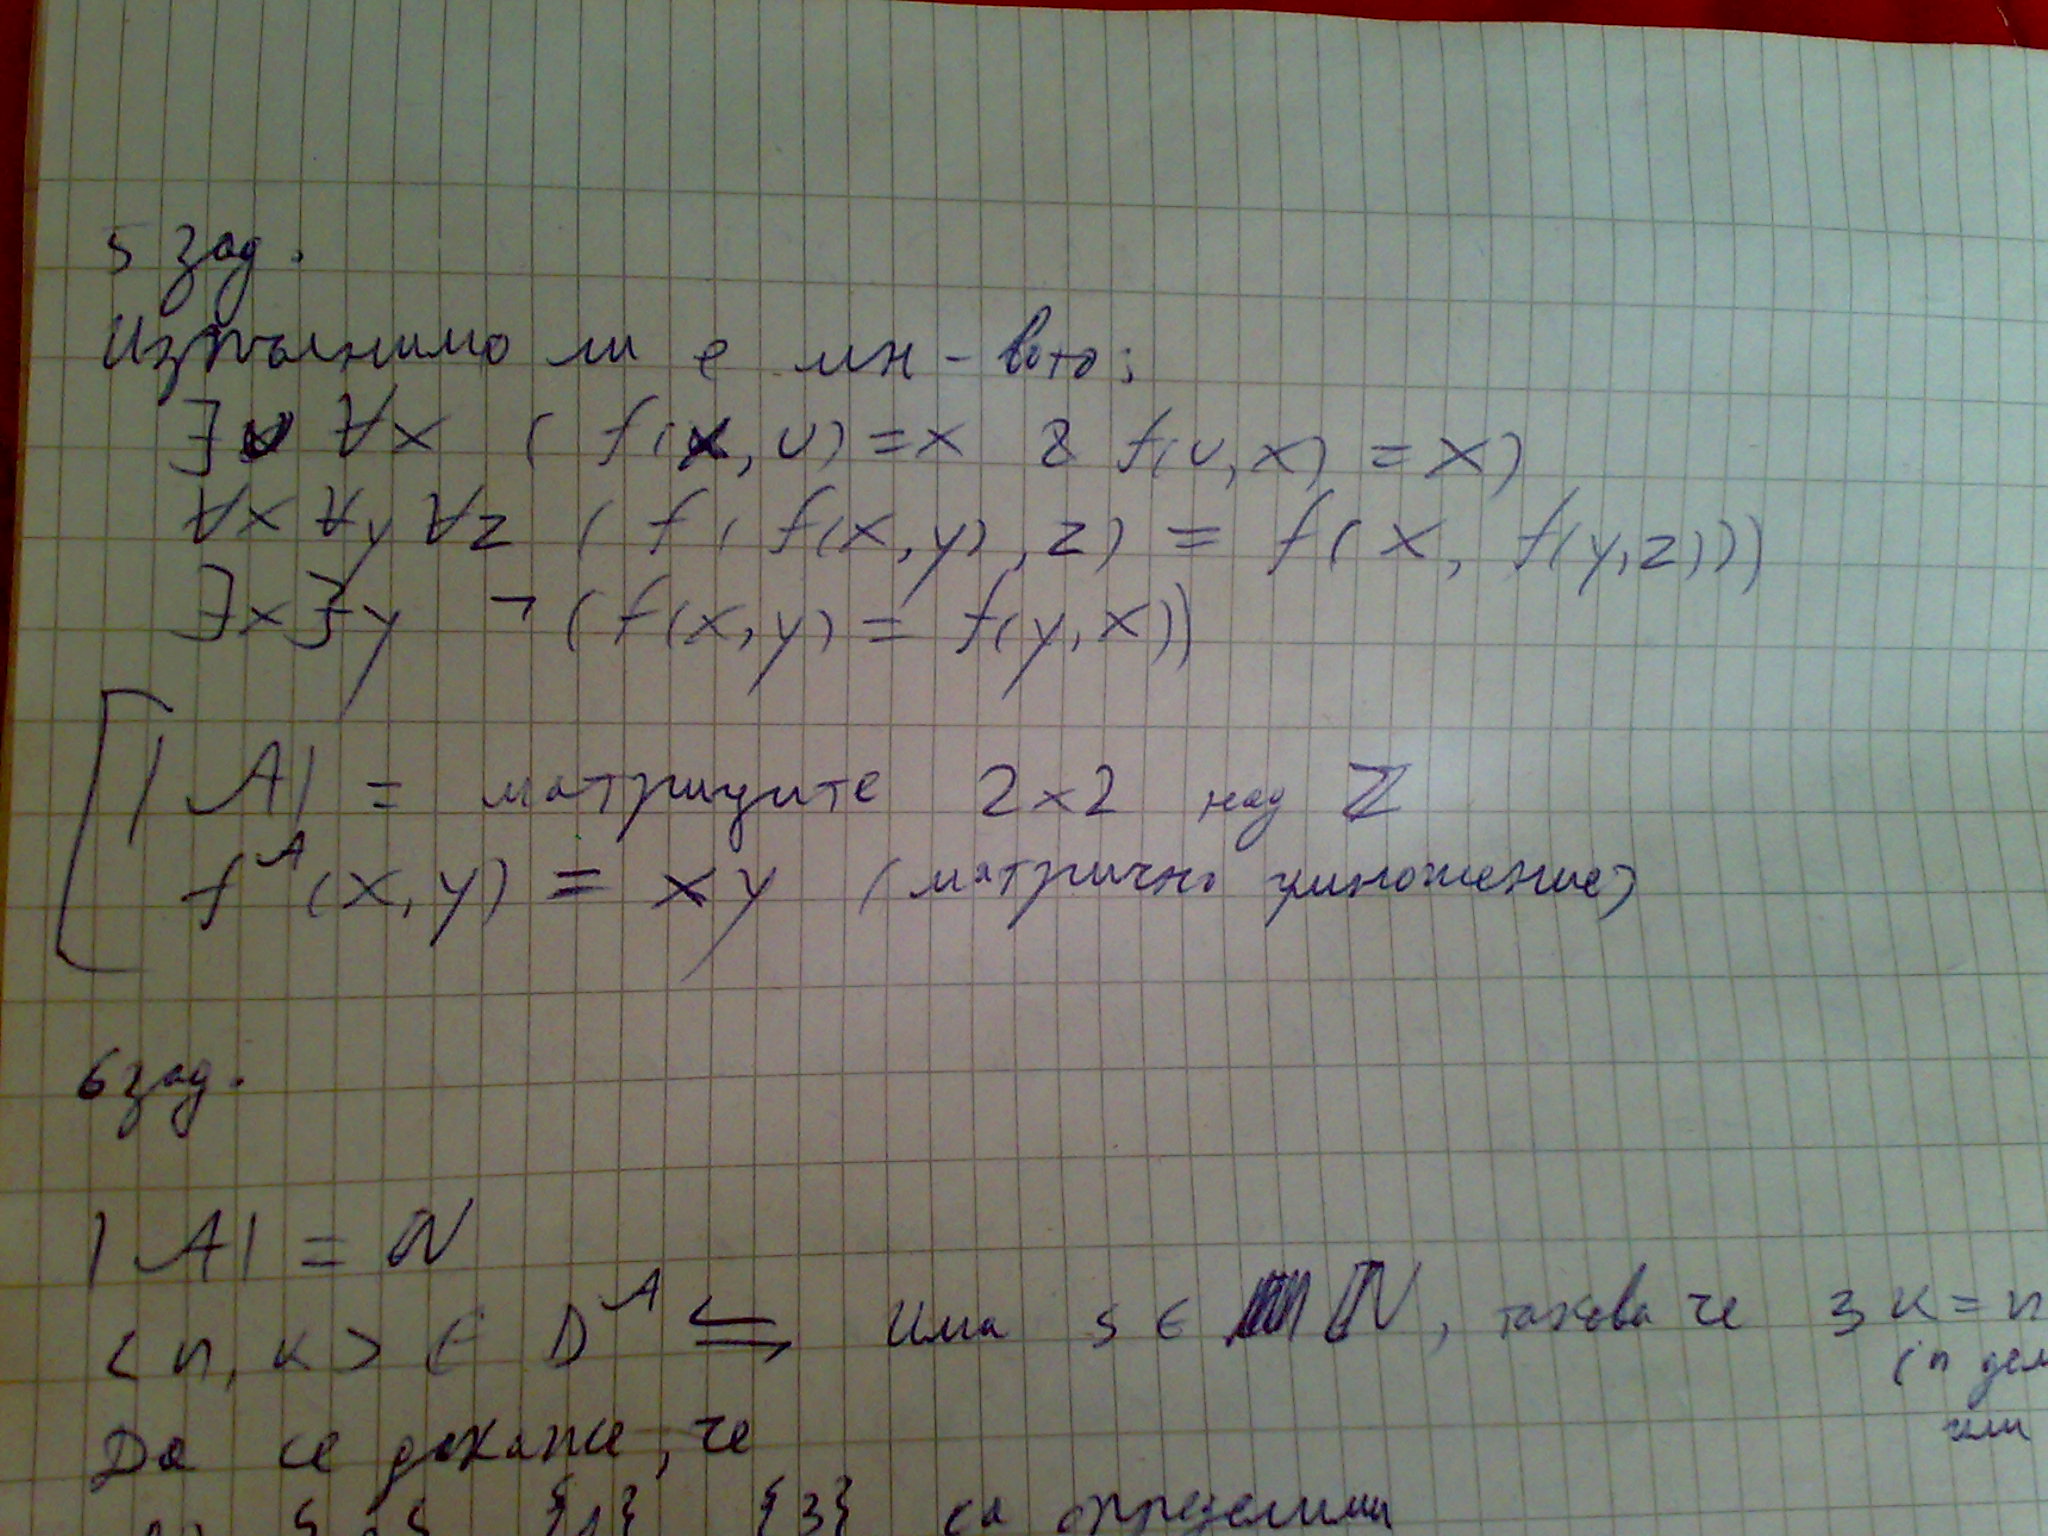 5 зад.
Изпълнимо ли е мн-вото:
∃υ ∀x ( f(x, υ) = x & f(υ, x) = x)
∀x ∀y ∀z ( f( f(x, y), z) = f( x, f(y,z)))
∃x∃y ¬ ( f(x, y) = f(y, x))
|A| = матриците 2x2 над ℤ
f^A (x, y) = xy (матрично умножение)
6 зад.
|A| = ℕ
< n, k > ∈ D^A ⇆ има s ∈ ℕ, такова че 3 k = n
(n дел
или
Да се докаже, че
{1} {3} са определими